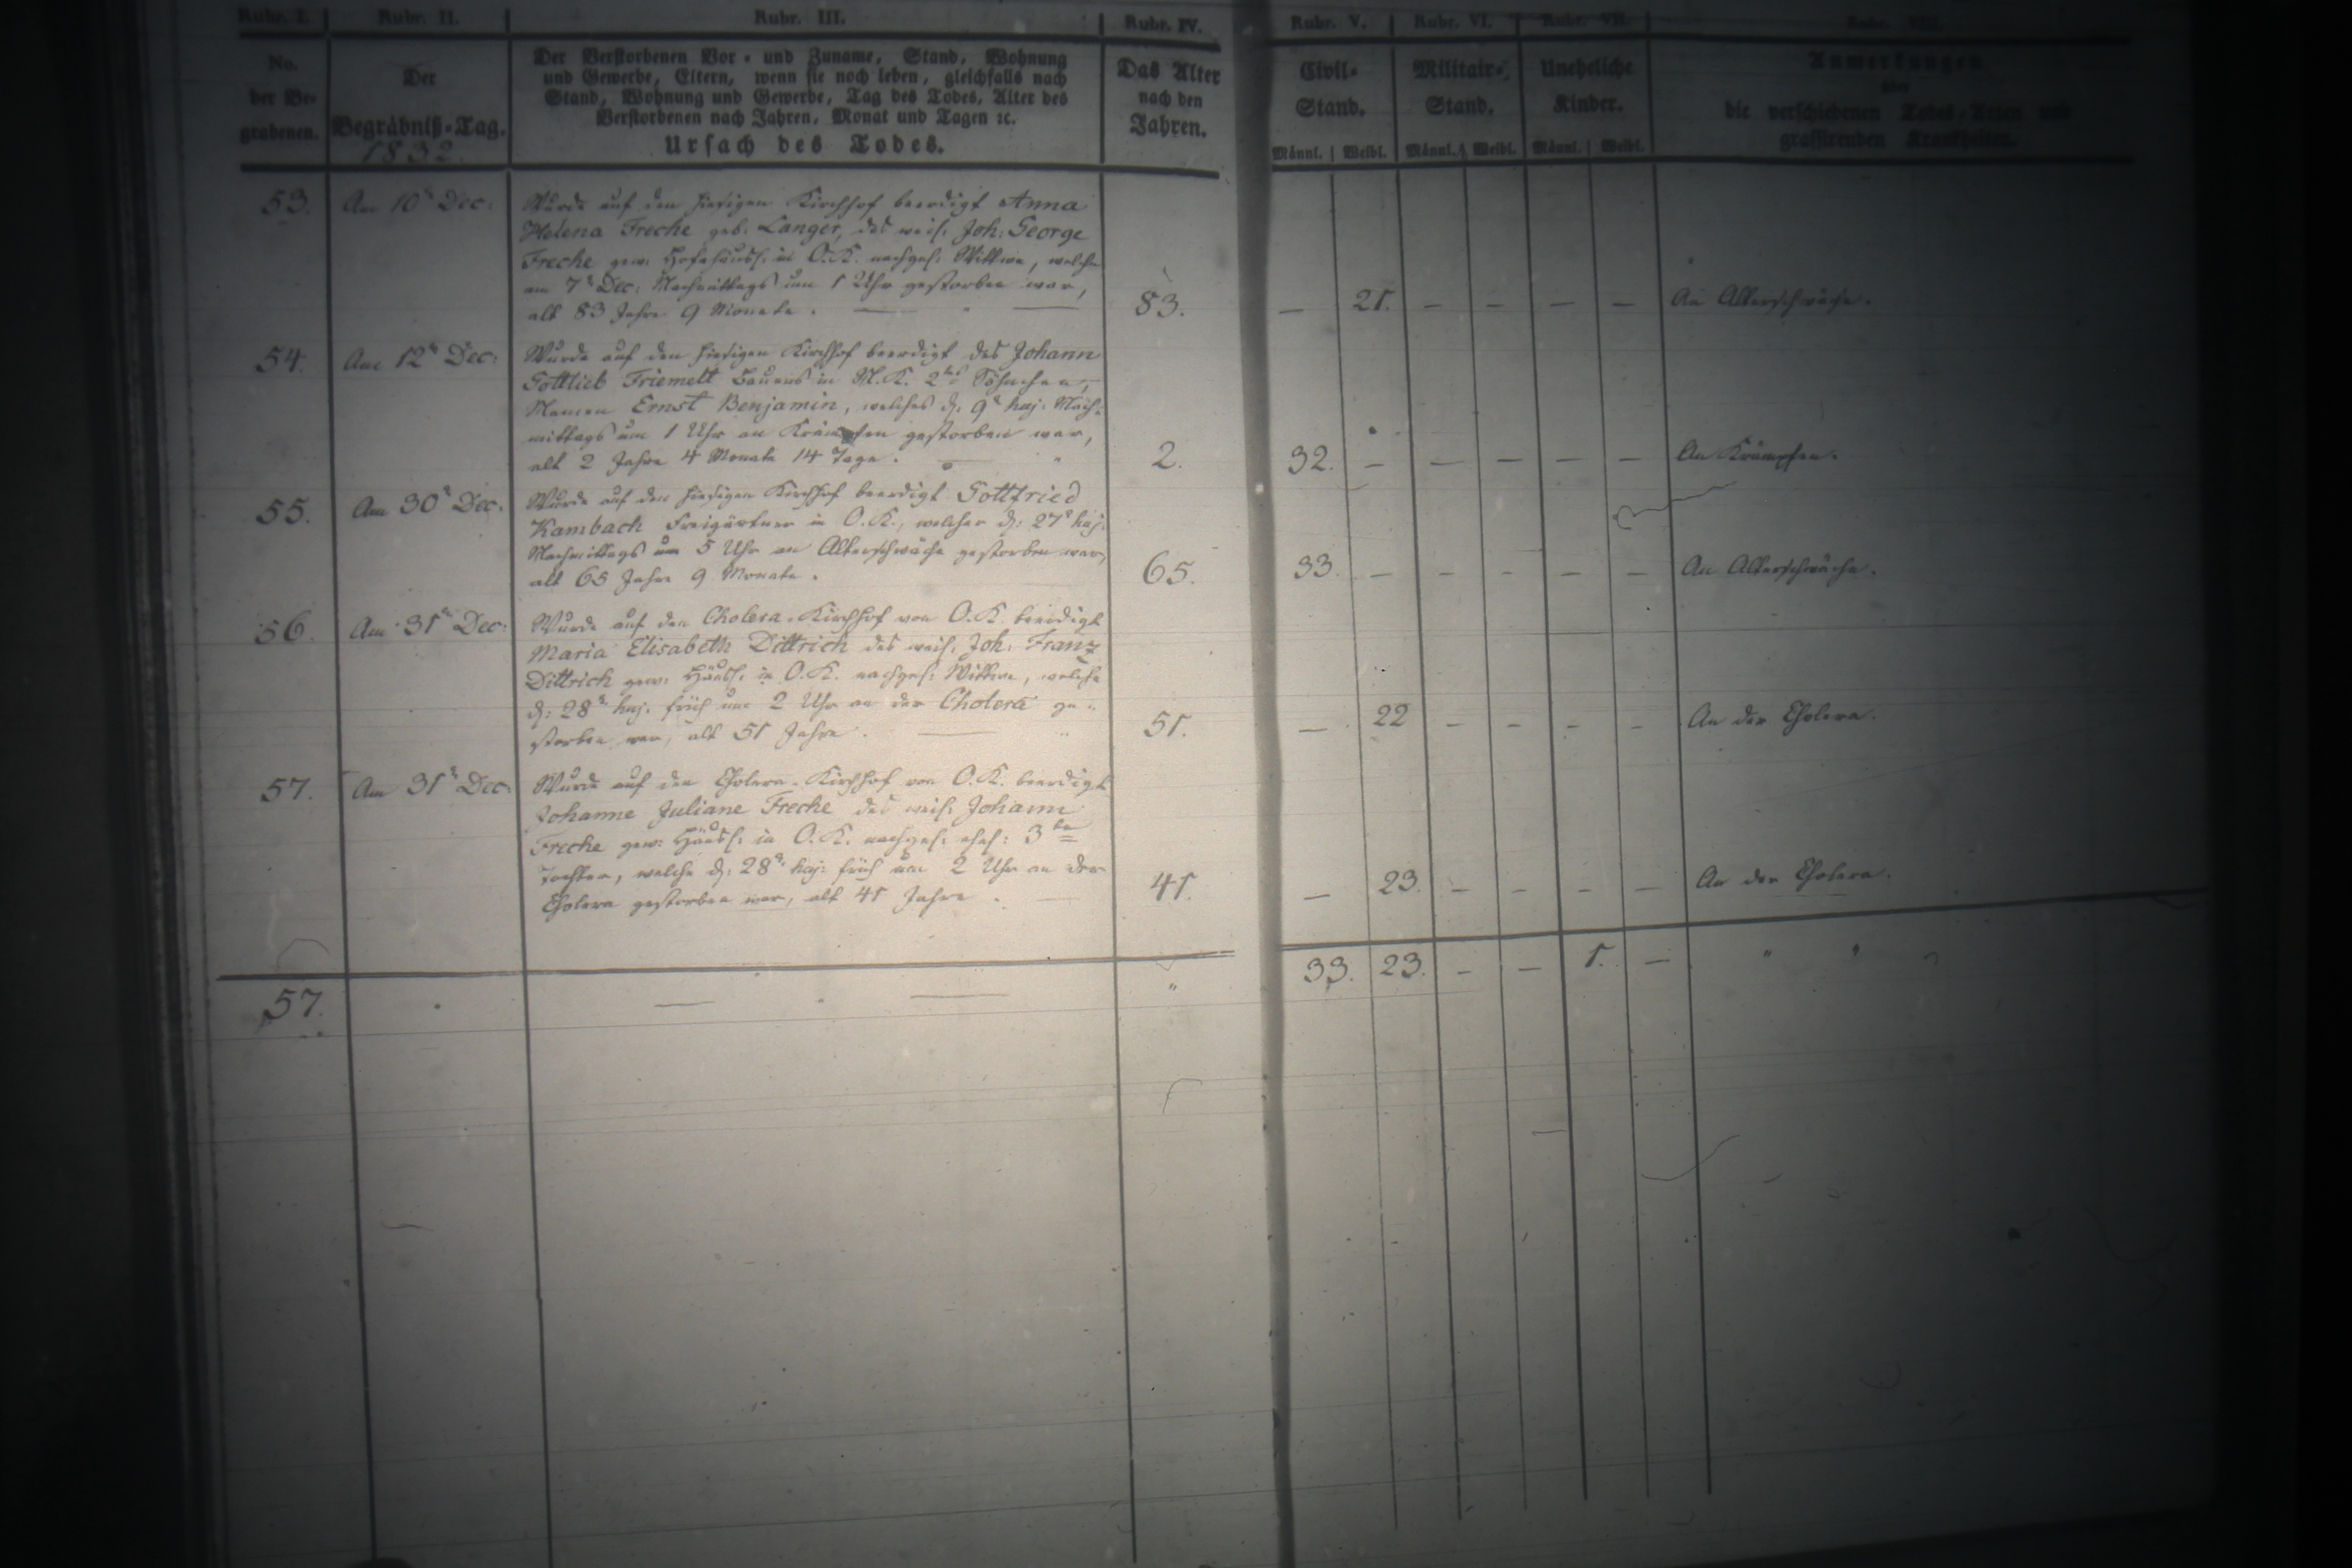 Rubr. I. Rubr. II. Rubr. III. Rubr. IV. Rubr. V. Rubr. VI. Rubr. VII. Rubr. VIII.
No.
der Be-
grabenen.
Der
Begräbniß-Tag.
1832.
Der Verstorbenen Vor- und Zuname, Stand, Wohnung
und Gewerbe, Eltern, wenn sie noch leben, gleichfalls nach
Stand, Wohnung und Gewerbe, Tag des Todes, Alter des
Verstorbenen nach Jahren, Monat und Tagen ꝛc.
Ursach des Todes.
Das Alter
nach den
Jahren.
Civil-
Stand.
Männl. Weibl.
Militair-
Stand.
Männl. Weibl.
Uneheliche
Kinder.
Männl. Weibl.
Anmerkungen
über
die verschiedenen Todes-Arten und
grassirenden Krankheiten.
53. Am 10ⁿ Dec: Wurde auf den hiesigen Kirchhof beerdigt Anna
Helena Freche geb. Langer, des weil. Joh: George
Freche gew. Hofehäusl. in O.K. nachgel. Wittwe, welche
am 7ⁿ Dec: Nachmittags um 1 Uhr gestorben war,
alt 83 Jahre 9 Monate. 83. — 21. — — — — An Alterschwäche.
54. Am 12ⁿ Dec: Wurde auf den hiesigen Kirchhof beerdigt des Johann
Gottlieb Friemelt Bauers in M.K. 2tes Söhnchen,
Namen Ernst Benjamin, welches d. 9ⁿ huj. Nach-
mittags um 1 Uhr an Krämpfen gestorben war,
alt 2 Jahre 4 Monate 14 Tage. 2. 32. — — — — — An Krämpfen.
55. Am 30ⁿ Dec. Wurde auf den hiesigen Kirchhof beerdigt Gottfried
Kambach Freigärtner in O.K., welcher d. 27ⁿ huj.
Nachmittags um 5 Uhr an Alterschwäche gestorben war,
alt 65 Jahre 9 Monate. 65. 33. — — — — — An Alterschwäche.
56. Am 31ⁿ Dec: Wurde auf den Cholera-Kirchhof von O.K. beerdigt
Maria Elisabeth Dittrich des weil. Joh: Franz
Dittrich gew: Häusl: in O.K. nachgel: Wittwe, welche
d: 28ⁿ huj. früh um 2 Uhr an der Cholera ge-
storben war, alt 51 Jahre. 51. — 22 — — — — An der Cholera.
57. Am 31ⁿ Dec: Wurde auf den Cholera-Kirchhof von O.K. beerdigt
Johanne Juliane Freche des weil. Johann
Freche gew: Häusl: in O.K. nachgel: ehel: 3te
Tochter, welche d: 28ⁿ huj: früh um 2 Uhr an der
Cholera gestorben war, alt 41 Jahre. 41. — 23. — — — — An der Cholera.
57. — " — " 33. 23. — — 1. — " "